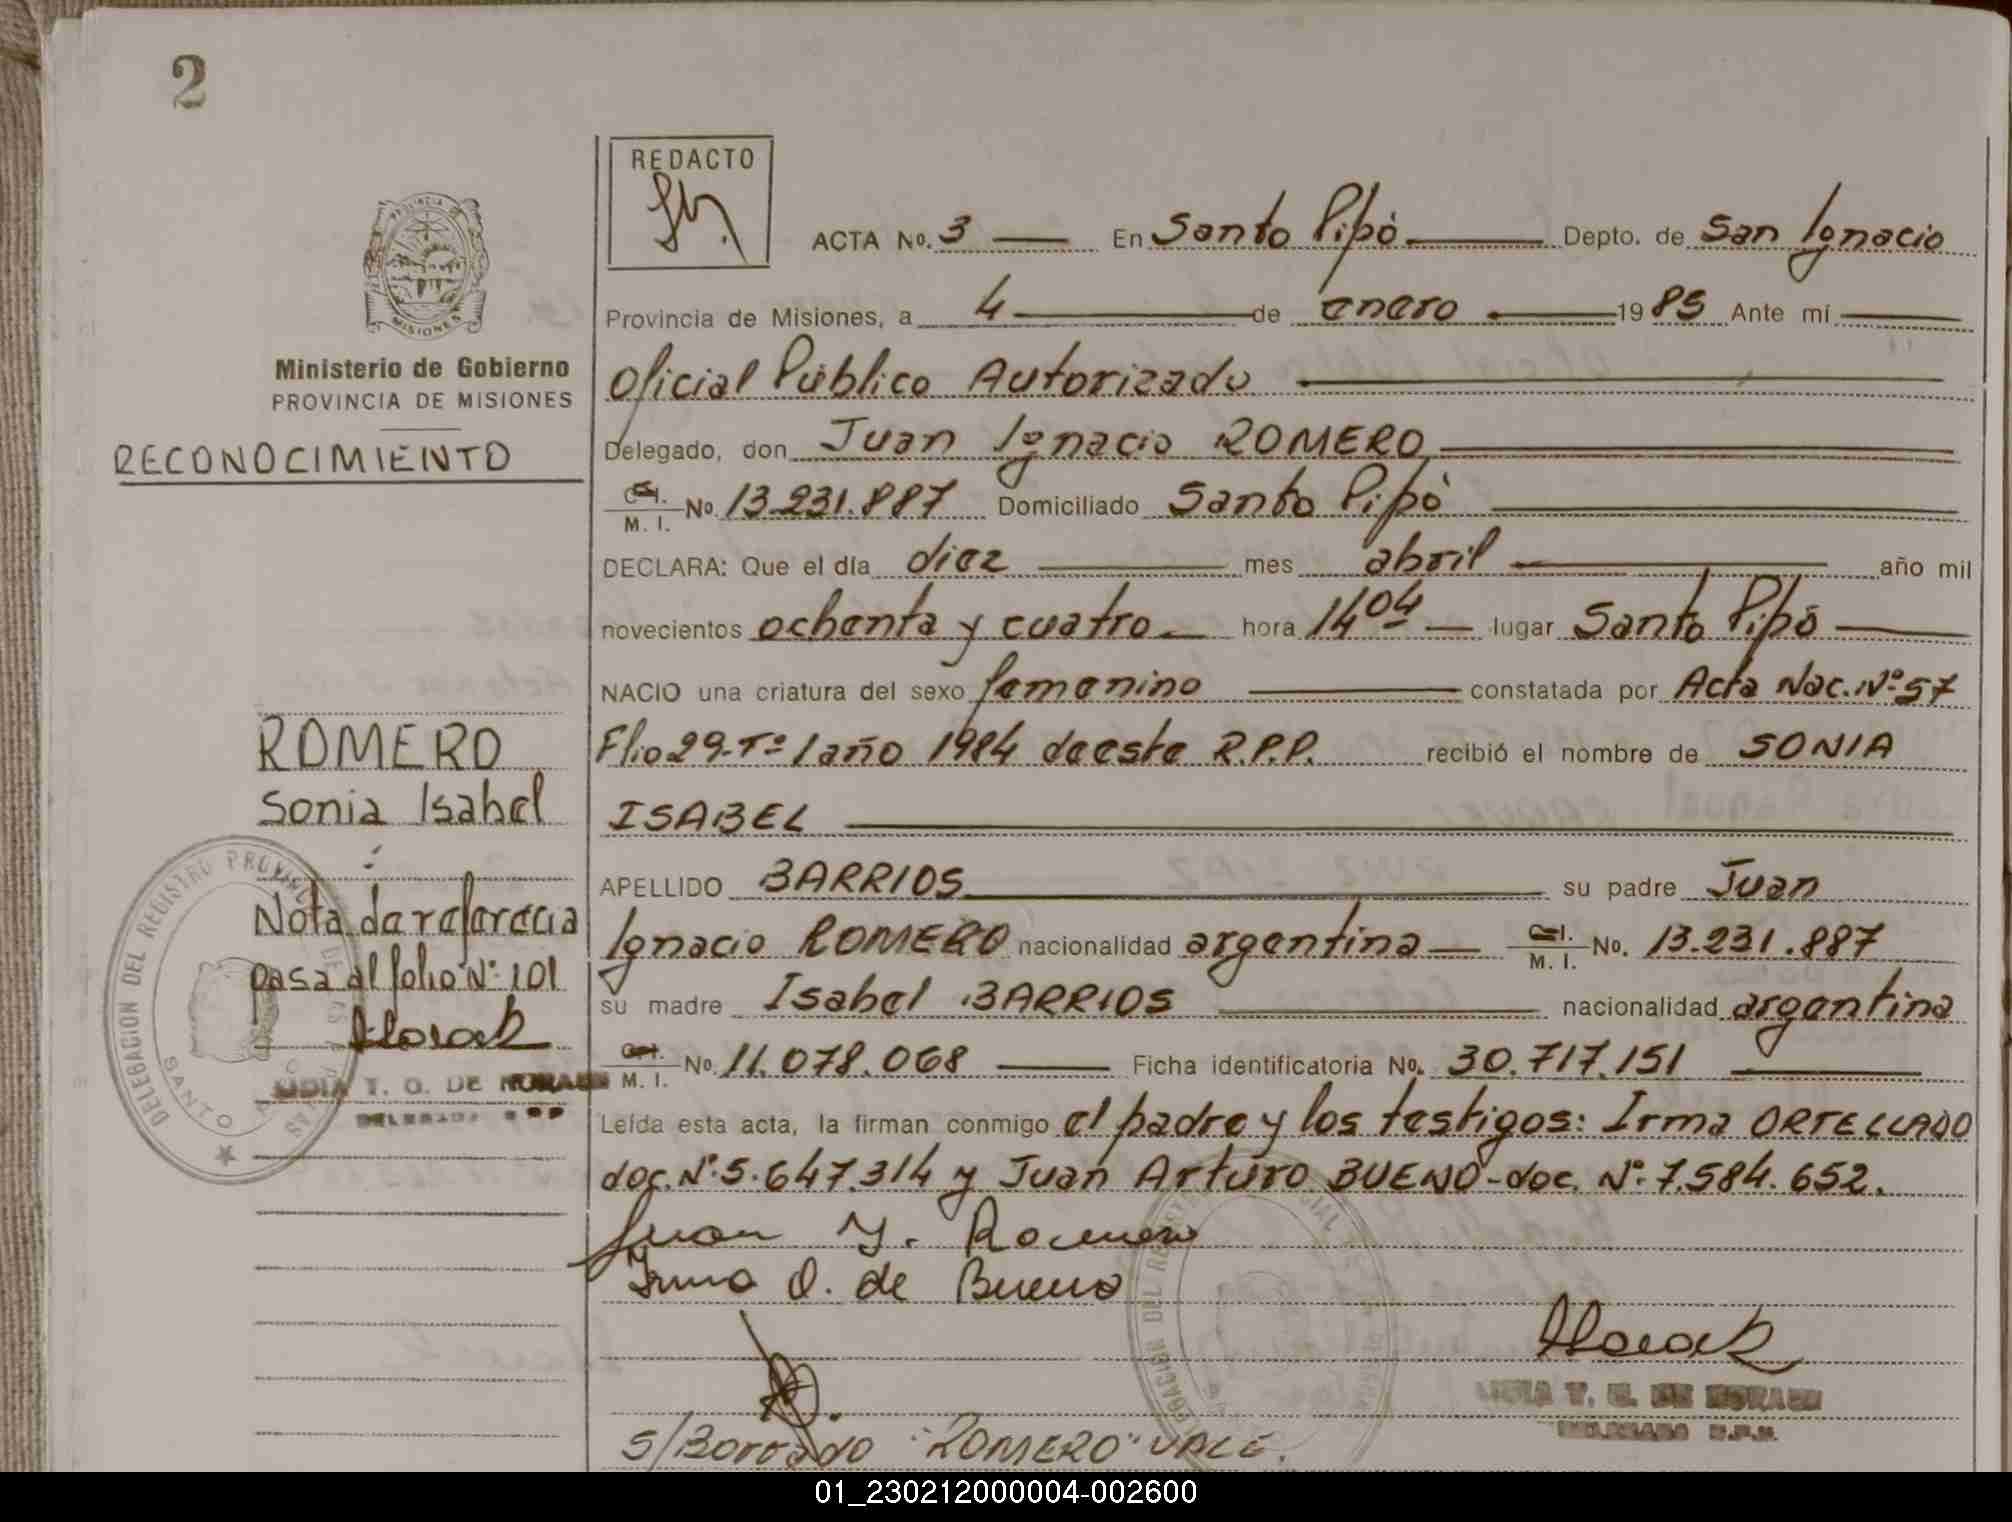 2
REDACTO
ACTA No. 3 En Santo Pipó Depto. de San Ignacio
Provincia de Misiones, a 4 de enero 1985 Ante mí
Oficial Público Autorizado
Delegado, don Juan Ignacio ROMERO
C. I. M. I. No. 13.231.887 Domiciliado Santo Pipó
DECLARA: Que el día diez mes abril año mil
novecientos ochenta y cuatro hora 14 04 lugar Santo Pipó
NACIO una criatura del sexo femenino constatada por Acta Nac. Nº 57
Flio 29-Tº 1 año 1984 de este R.P.P. recibió el nombre de SONIA
ISABEL
APELLIDO BARRIOS su padre Juan
Ignacio ROMERO nacionalidad argentina C. I. M. I. No. 13.231.887
su madre Isabel BARRIOS nacionalidad argentina
C. I. M. I. No. 11.078.068 Ficha identificatoria No. 30.717.151
Leída esta acta, la firman conmigo el padre y los testigos: Irma ORTELLADO
doc. Nº 5.647.314 y Juan Arturo BUENO-doc. Nº 7.584.652.
Juan Y. Romero
Irma O. de Bueno
LIDIA T. O. DE MORALES
DELEGADO R.P.P.
S/Borrado "ROMERO" VALE.
PROVINCIA DE
MISIONES
Ministerio de Gobierno
PROVINCIA DE MISIONES
RECONOCIMIENTO
ROMERO
Sonia Isabel
Nota de referecia
pasa al folio Nº 101
LIDIA T. O. DE
DELEGADO
DELEGACION DEL REGISTRO PROVINCIAL DE LAS PERSONAS
SANTO PIPO
DELEGACION DEL
01_230212000004-002600